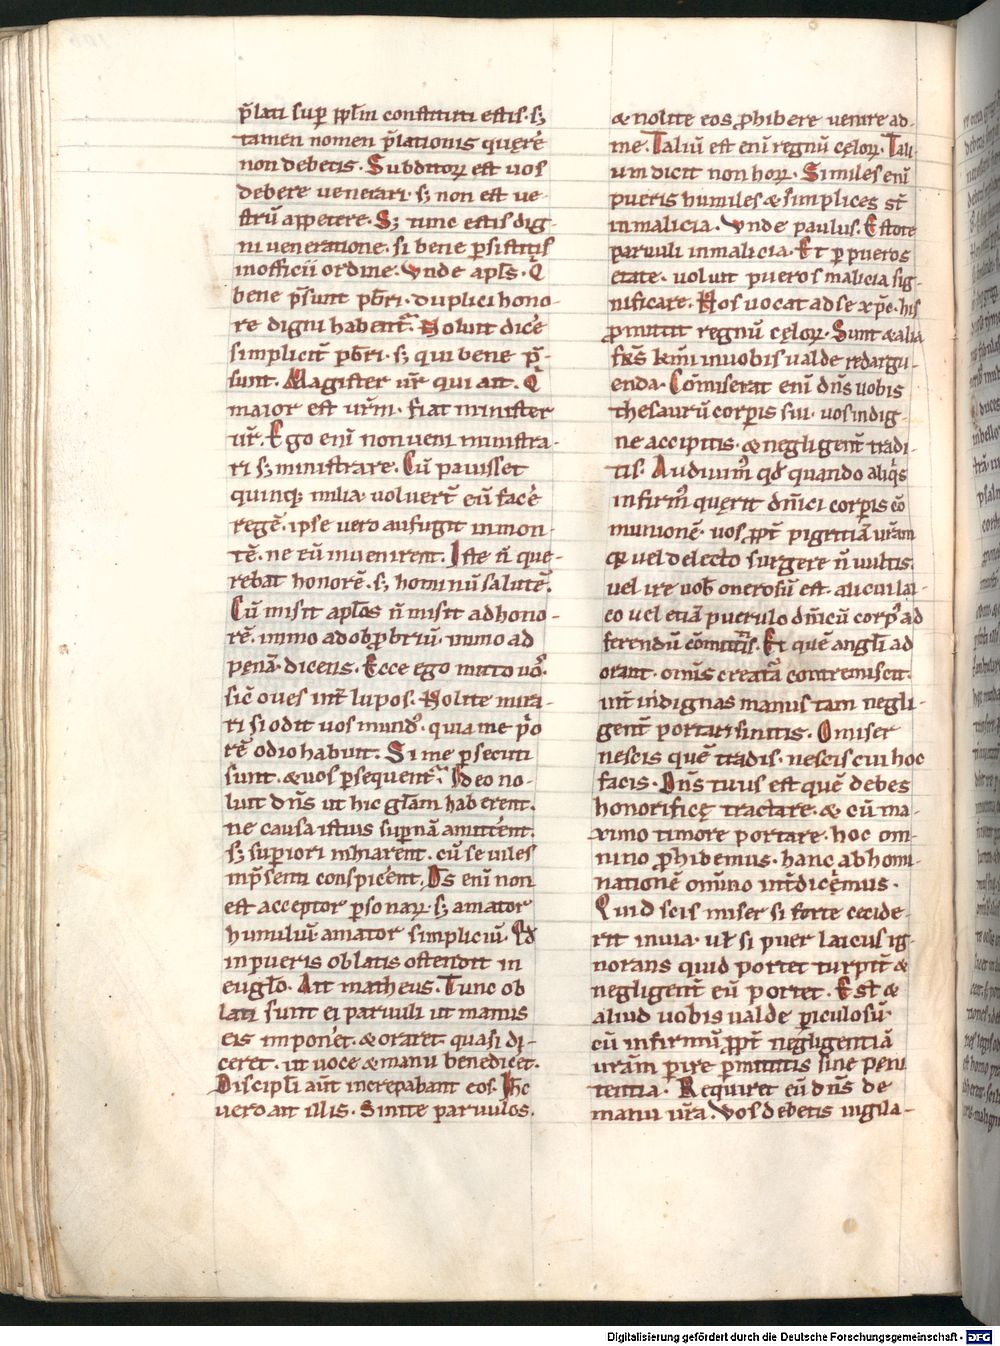 p̄lati sup̱ pp̄lm constituti estis · sꝫ
tamen nomen p̄lationis querͤe
non debetis · Subditoꝝ est uos
debere uenerari · sꝫ non est ue-
strū appetere · Sꝫ tunc estis dig-
ni ueneratione · si bene ꝑsistitis
in officii ordine · Vnde apl̄s · Q̇
bene p̄sunt p̄bri · duplici hono-
re digni habent᷑ · Noluit dicͤe
simplicit̄ p̄bri · sꝫ qui bene p̄-
sunt · Magister ur̄ qui ait · Q̇
maior est ur̄m · fiat minister
ur̄ · Ego eni non ueni ministra-
ri sꝫ ministrare · Cū pauisset
quinqꝫ milia uoluert̄ eū facͤe
regē · ipse uero aufugit in mon-
tē · ne eū inuenirent · Iste n̄ que-
rebat honorē · sꝫ hominū salutē ·
Cū misit apl̄os n̄ misit ad hono-
rē · immo ad obꝓbriū · immo ad
penā · dicens · Ecce ego mitto uoˢ ·
sic̄ oues int̄ lupos · Nolite mira-
ri si odit uos mundꝰ · quia me p̓o
rē odio habuit · Si me ꝑsecuti
sunt · & uos ꝑsequent᷑ · Ideo no-
luit dn̄s ut hic gl̄am haberent ·
ne causa istius supn̄ā amittͤent ·
sꝫ superiori inhiarent · cū se uiles
in p̄senti conspicͤent · Ds̄ eni non
est acceptor ꝑsonaꝝ · sꝫ amator
humiliū · amator simpliciū · Qđ
in pueris oblatis ostendit in
eugl̄o · Ait matheus · Tunc ob
lati sunt ei paruuli ut manus
eis imponͤet · & oraret · quasi di-
ceret · ut uoce & manu benedicͤet ·
Discipl̄i aūt increpabant eos · Ihc̄
uero ait illis · Sinite paruulos ·
& nolite eos ꝓhibere uenire ad-
me · Taliū est eni regnū cęloꝝ · Tali-
um dicit non hoꝝ · Similes eni
pueris humiles & simplices st̄
in malicia · Vnde paulus · Estote
paruuli in malicia · Et ꝑ pueros
etate · uoluit pueros malicia sig-
nificare · Hos uocat ad se xp̄c · his
ꝓmittit regnū cęloꝝ · Sunt & alia
fr̄s km̄i in uobis ualde redargu-
enda · Cōmiserat eni dn̄s uobis
thesaurū corꝑis sui · uos indig-
ne accipitis · & negligent̄ tradi-
tis · Audiuim᷒ qđ quando aliq̇s
infirm᷒ querit dn̄ici corꝑis cō
munionē · uos ꝓpt̄ pigritiā uram
quel de lecto surgere n̄ uultis ·
uel ire uob̄ onerosū est · alicui lai-
co uel etiā puerulo dn̄icū corpꝰ ad
ferendū cōmittitis · Et quē angl̄i ad
orant · oīnis creat᷑a contremiscit ·
int̄ indignas manus tam negli-
gent̄ portari sinitis · O miser
nescis quē tradis · nescis cui hoc
facis · Dn̄s tuus est quē debes
honorificę tractare · & cū ma-
ximo timore portare · hoc om-
nino ꝓhibemus · hanc abhomi-
nationē omino int̄dicͤemus ·
Quid scis miser si forte cecide-
rit in uia · ul̄ si puer laicus ig-
norans quid portet turpit̄ &
negligent̄ eū portet · Est̄ &
aliud uobis ualde ꝑiculosū ·
cū infirmū ꝓpt̄ negligentiā
uram ꝑire ꝑmittitis sine peni
tentia · Requiret eū dn̄s de
manu ur̄a · Vos debetis uigila-
Digitalisierung gefördert durch die Deutsche Forschungsgemeinschaft - DFG